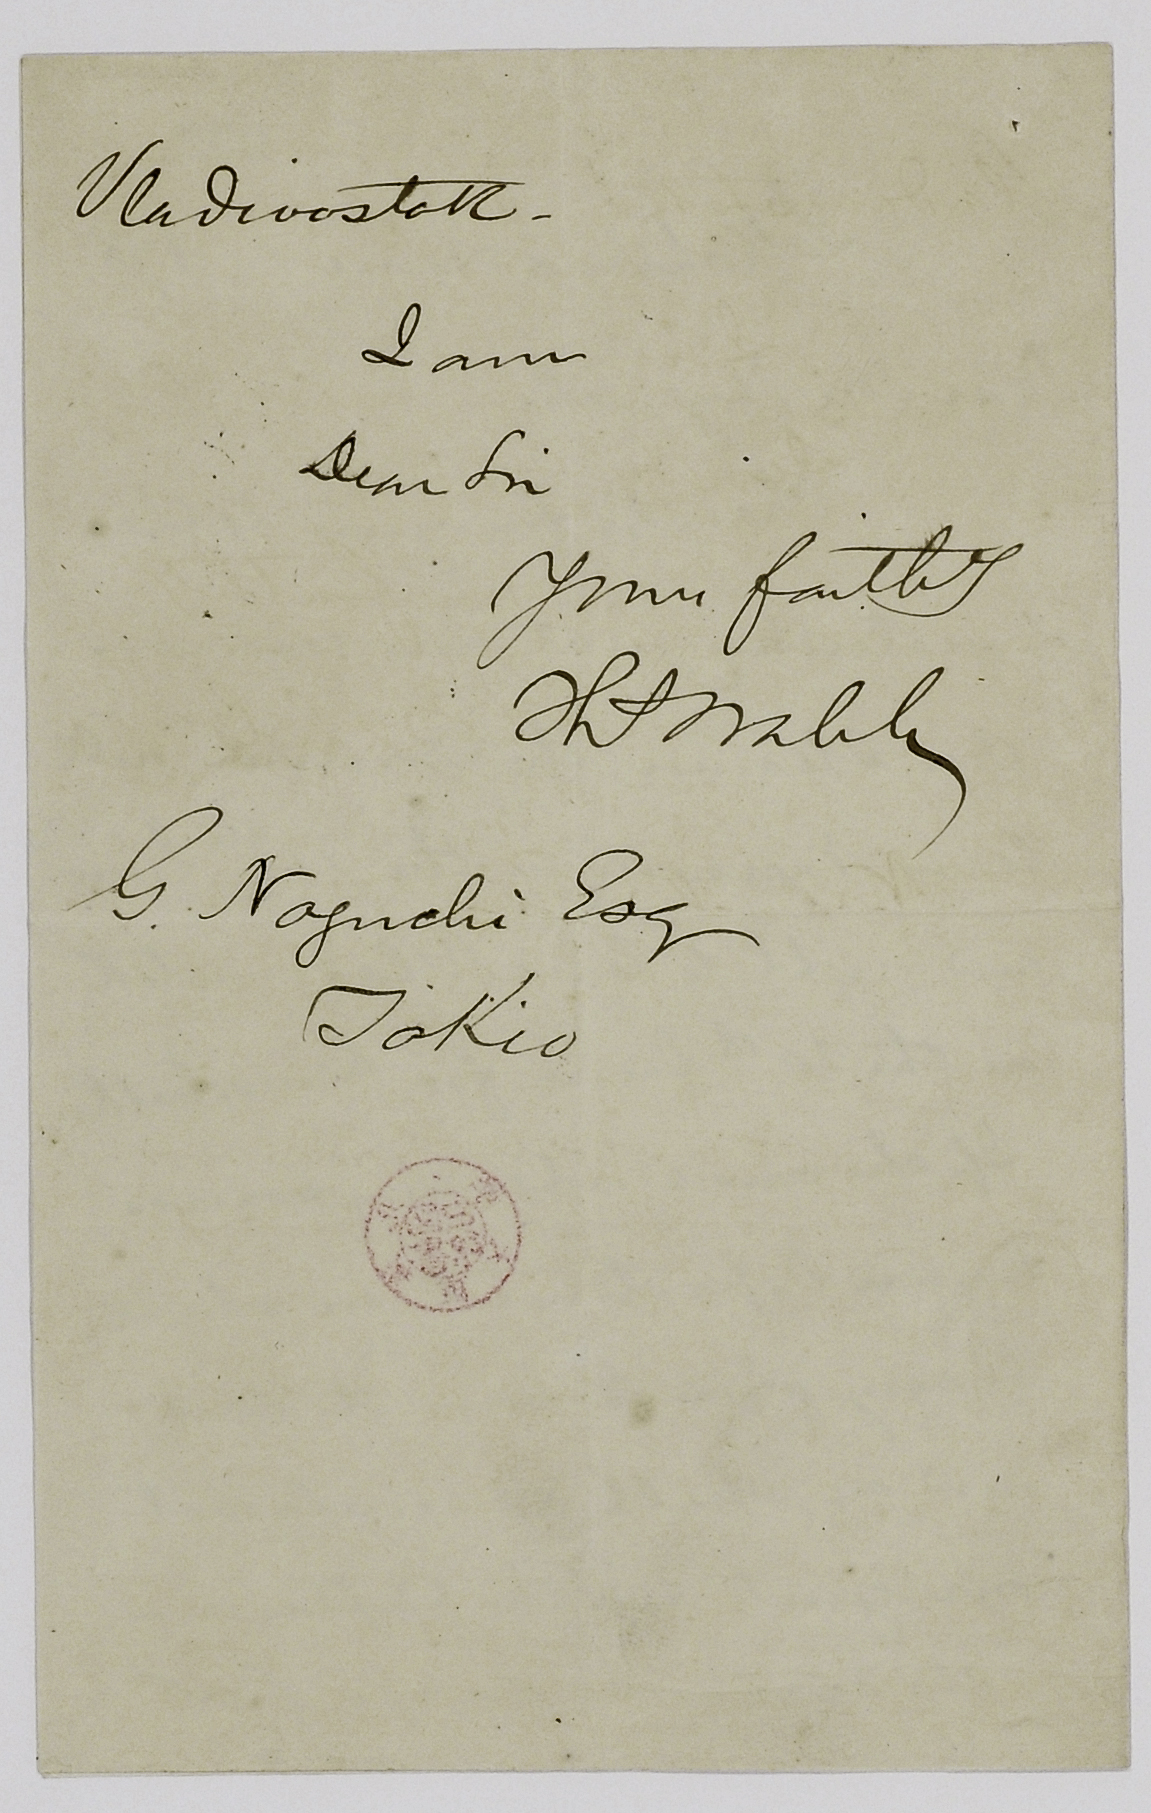 Vladivostok -
I am
Dear Sir
Yours faithy
G. Noguchi Esq
Tokio